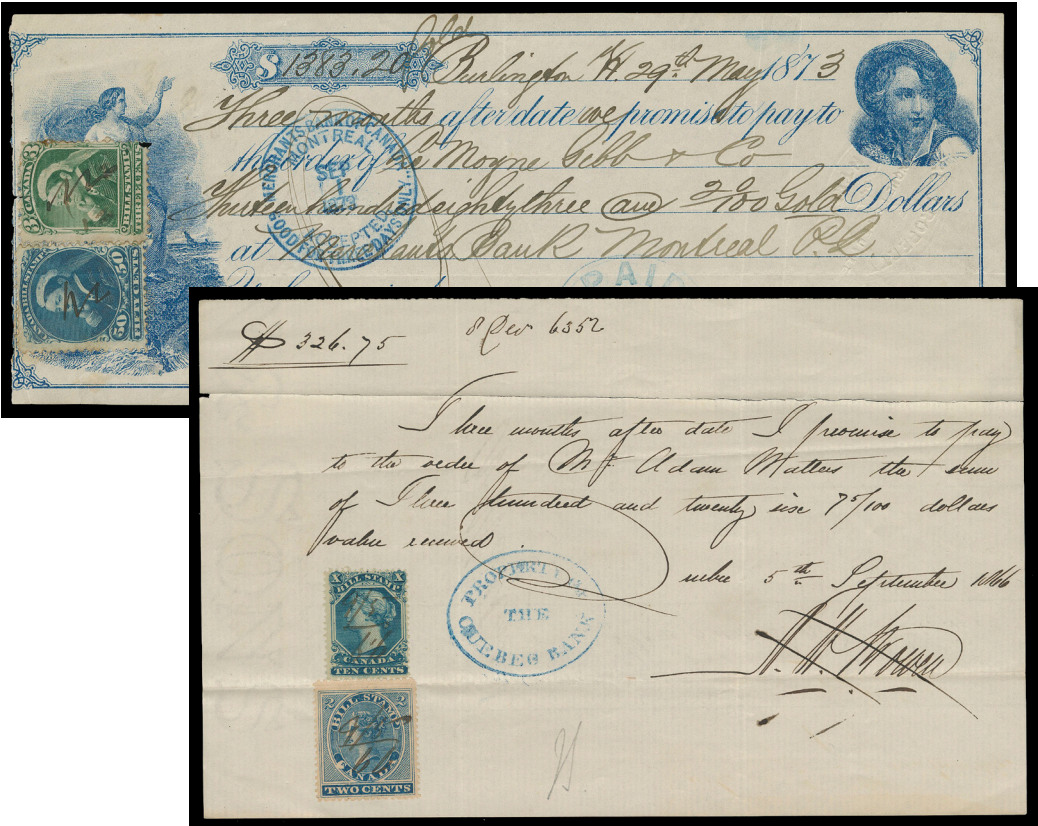 $1383.20/ Gold Burlington Vt. 29th May 1873
Three months after date we promise to pay to
the order of Le Moyne Gibb & Co
Thirteen hundred eighty three and 20/100 Gold Dollars
at Merchants Bank Montreal P.Q.
MERCHANTS BANK OF CANADA
MONTREAL
SEP
1
1873
ACCEPTED
GOOD FOR DAYS ONLY
PAID
3 CANADA 3
BILL STAMP
THREE CENTS
CANADA BILL STAMP
50 50
FIFTY CENTS
$ 326.75
8 Dec 6352
Three months after date I promise to pay
to the order of Mr Adam Watters the sum
of Three Hundred and twenty six 75/100 dollars
value received.
Quebec 5th September 1866
PROPERTY OF
THE
QUEBEC BANK
X BILL STAMP X
CANADA
TEN CENTS
2 BILL STAMP 2
CANADA
TWO CENTS